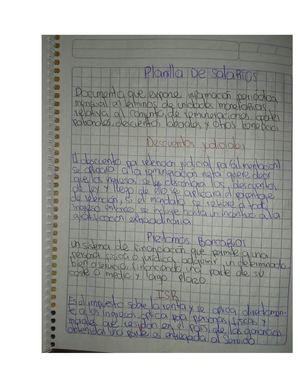 Planilla De Salarios
Documento que expone información periódica
mensual en términos de unidades monetarias
relativa al conjunto de remuneraciones, aportes
patronales, descuentos laborales y otros beneficios
Descuentos judiciales
El descuento por retención judicial por alimentación
se efectúa a la remuneración neta quiere decir
que los ingresos se les descontara los descuentos
de ley y luego de eso se aplicara el porcentaje
de retención, si el mandato se refiere a todo
ingreso
gratificación extraordinaria
Prestamos Bancarios
un sistema de financiación que permite a una
persona física o jurídica adquirir un determinado
bien o servicio financiando una parte de su
coste a medio y largo plazo
ISR
Es el impuesto sobre la renta y se aplica directamen-
te a los ingresos aplica para personas físicas y
morales que en el país, de las ganancias
obtenidas una parte es entregada al